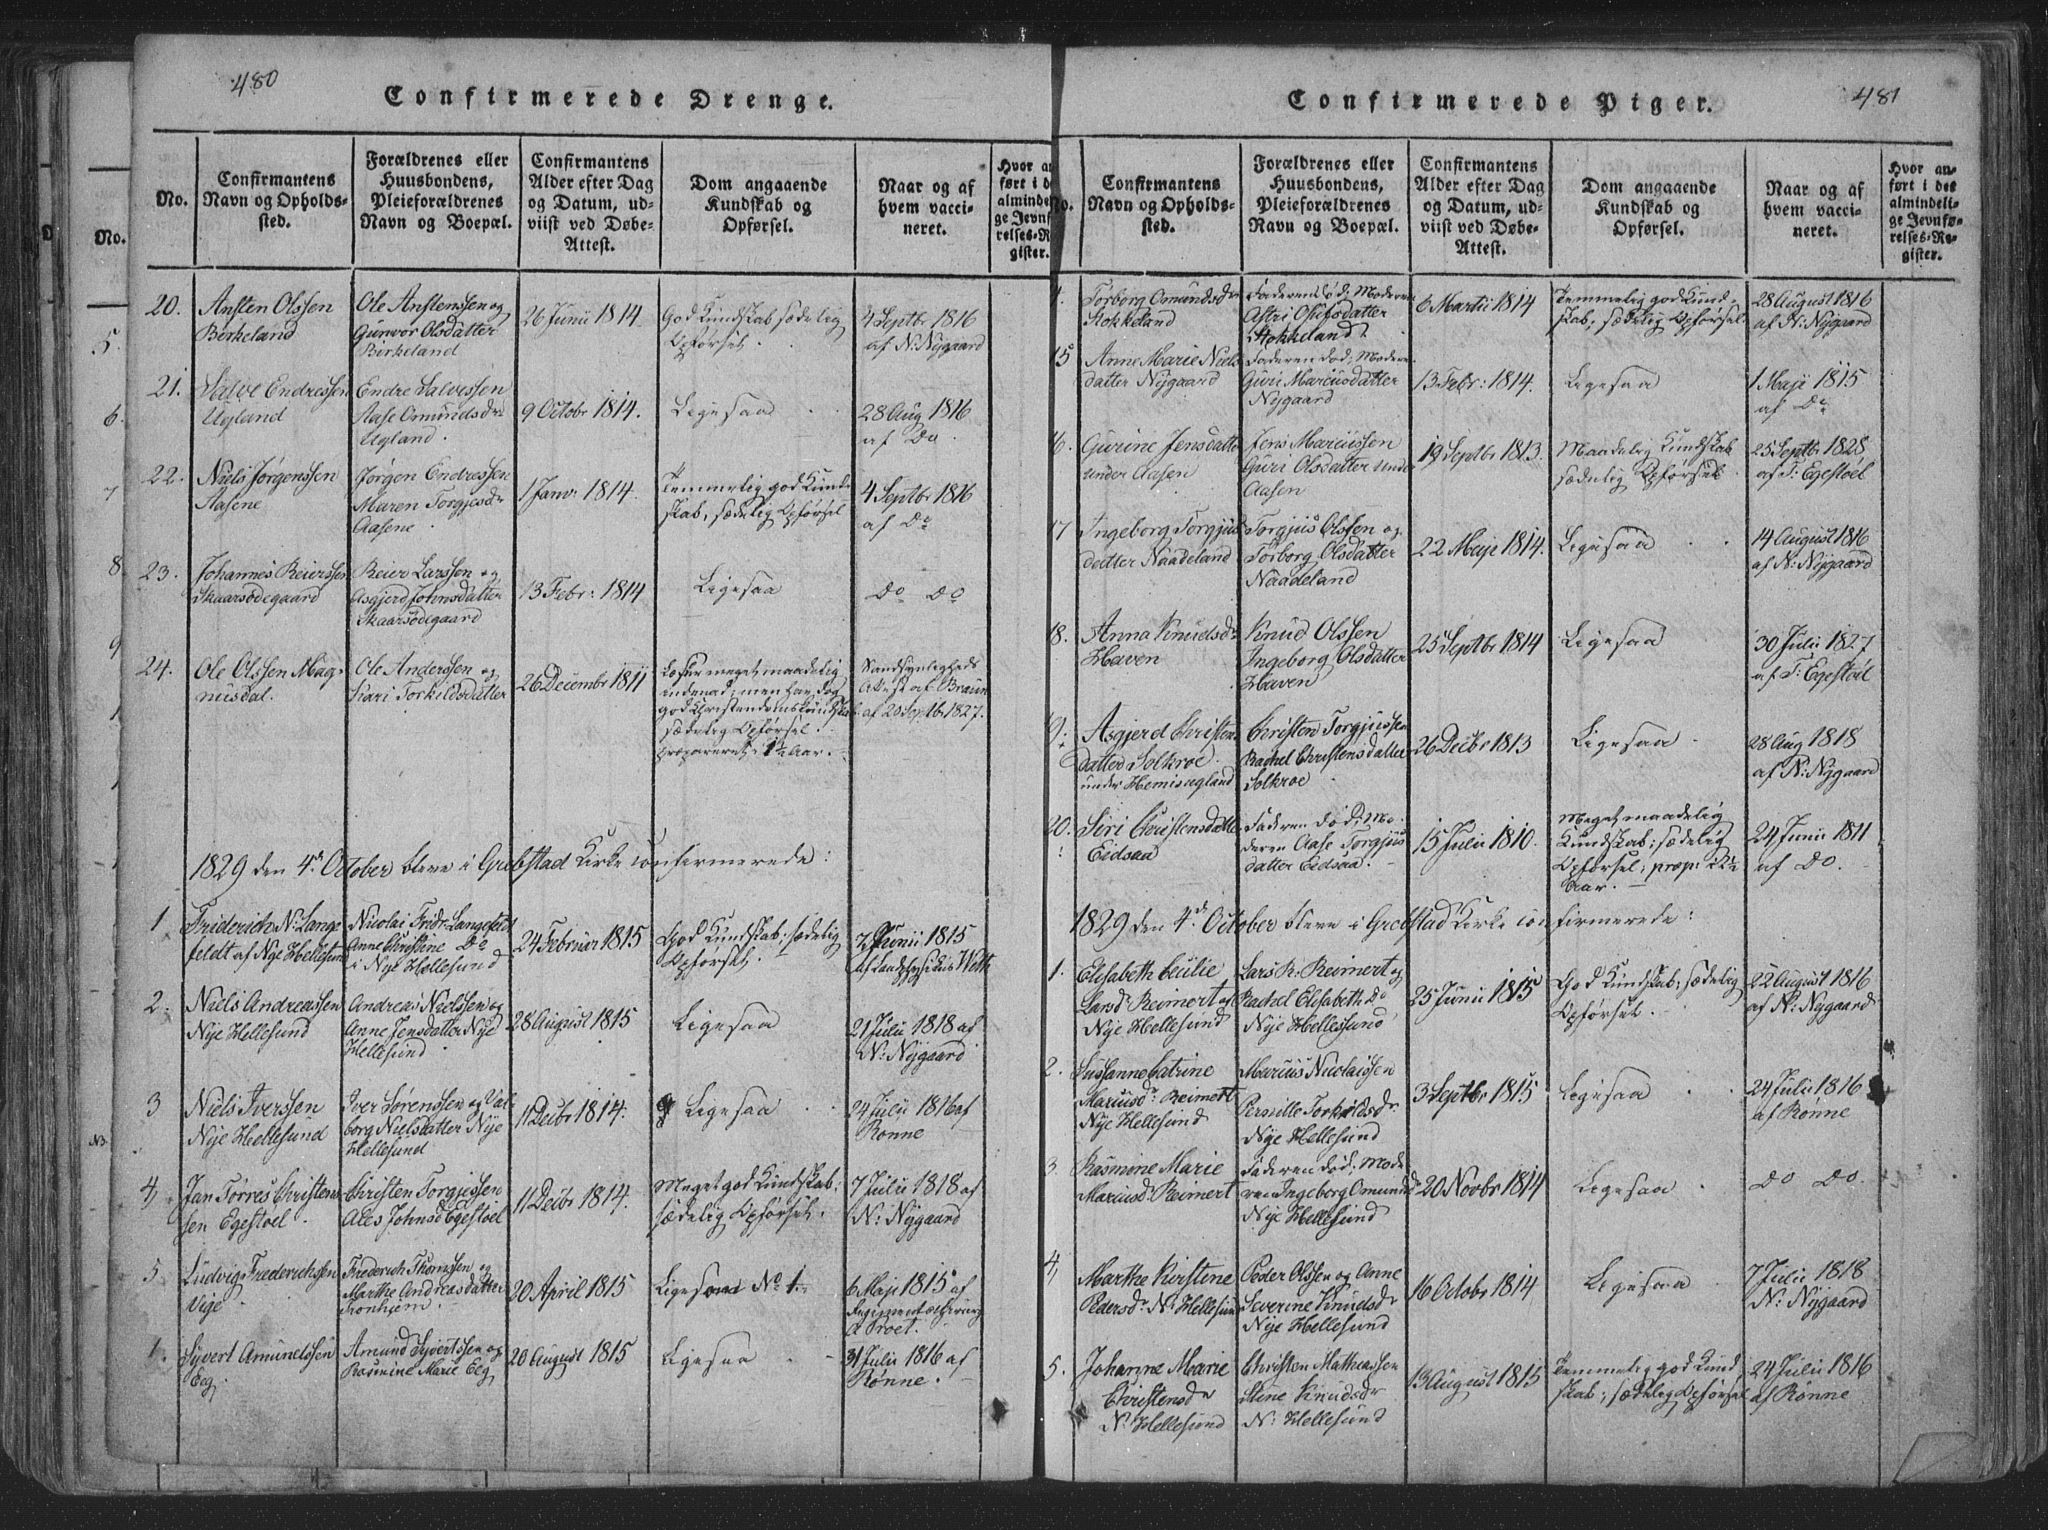 480
Confirmerede Drenge.
No.
Confirmantens
Navn og Opholds-
sted.
Forældrenes eller
Huusbondens,
Pleieforældrenes
Navn og Boepæl.
Confirmantens
Alder efter Dag
og Datum, ud-
viist ved Døbe-
Attest.
Dom angaaende
Kundskab og
Opførsel.
Naar og af
hvem vacci-
neret.
Hvor an
ført i de
almindeli
ge Jevnfø
relses-Re
gister.
20.
Ansten Olssen
Birkeland
Ole Anstenssen og
Gunvor Olsdatter
Birkeland
26 Junii 1814.
God Kundskab sædelig
Opførsel.
4 Septbr 1816
af N: Nygaard
21.
Salve Endressen
Ugland
Endre Salvessen
Aase Omundsdr
Ugland.
9 Octobr 1814.
Ligesaa
28 Aug 1816
af Do.
22.
Niels Jørgenssen
Aasene
Jørgen Endressen
Maren Torgjesdr
Aasene.
1 Janv: 1814.
Temmelig god Kund
skab, sædelig Opførsel
4 Septbr 1816
af Do
23.
Johannes Reierssen
Skaarsødegaard
Reier Larssen og
Asgjerd Johnsdatter
Skaarsødegaard
13 Febr: 1814
Ligesaa
Do Do
24.
Ole Olssen Mag-
nisdal.
Ole Anderssen og
Siari Torkildsdatter
26 Decembr 1811
Læser meget maadelig
indenad; men har dog
god Christendomskundskab
sædelig Opførsel.
præpareret i 1½ Aar.
Sandsynligheds
Attest af Bruun
af 20 Septbr 1827.
1829 den 4de October bleve i Grebstad Kirke confirmerede:
1
Friderich N: Lange
feldt af Nye Hellesund
Nicolai Fridr: Langefeldt
Anne Christine Do
i Nye Hellesund
24 Februar 1815
God Kundskab; sædelig
Opførsel.
2 Junii 1815
af Landphysicus Weth
2.
Niels Andreassen
Nye Hellesund
Andreas Nielssen og
Anne Jensdatter Nye
Hellesund.
28 August 1815
Ligesaa
21 Julii 1818 af
N: Nygaard
3
Niels Iverssen
Nye Hellesund
Iver Sørenssen og Val-
borg Nielsdatter Nye
Hellesund
11 Decbr 1814.
Ligesaa
24 Julii 1816 af
Rønne
4
Jan Tørres Christens
sen Egestøel.
Christen Torgjussen
Ales Johnsd Egestøel
11 Decbr 1814.
Meget god Kundskab;
sædelig Opførsel.
7 Julii 1818 af
N: Nygaard
5
Ludvig Frederichssen
Vige.
Frederich Thomssen og
Marthe Andreasdatter
Tronhiem.
20 April 1815
Ligesom No 1.
6 Maji 1815 af
Regimentschirurg
Proet.
1.
Syvert Amundssen
Eeg.
Amund Syvertssen og
Rasmine Marie Eeg
20 August 1815
Ligesaa
31 Julii 1816 af
Rønne.
481
Confirmerede Piger.
No.
Confirmantens
Navn og Opholds-
sted.
Forældrenes eller
Huusbondens,
Pleieforældrenes
Navn og Boepæl.
Confirmantens
Alder efter Dag
og Datum, ud-
viist ved Døbe-
Attest.
Dom angaaende
Kundskab og
Opførsel.
Naar og af
hvem vacci-
neret.
Hvor an-
ført i det
almindeli-
ge Jevnfø-
relses-Re-
gister.
4.
Torborg Omundsdr
Stokkeland
Faderen død; Moderen
Astri Olufsdatter
Stokkeland.
6 Martii 1814
Temmelig god Kund-
skab; sædelig Opførsel
28 August 1816
af N: Nygaard
15
Anne Marie Niels
datter Nygaard
Faderen død; Moderen
Guri Marcusdatter
Nygaard
13 Febr: 1814.
Ligesaa
1 Maji 1815
af Do
6.
Gurine Jensdatter
under Aasen
Jens Marcussen
Guri Olsdatter under
Aasen
19 Septbr 1813.
Maadelig Kundskab
sædelig Opførsel
25 Septbr 1828
af T: Egestøel
17
Ingeborg Torgjus
datter Naadeland
Torgjus Olssen og
Torborg Olsdatter
Naadeland
22 Maji 1814.
Ligesaa
14 August 1816
af N: Nygaard
18.
Anna Knudsdr
Haven
Knud Olssen
Ingeborg Olsdatter
Haven
25 Septbr 1814
Ligesaa
30 Julii 1827
af T: Egestøel
19.
Asgjerd Christens
datter Solkroe.
under Hemisugland
Christen Torgjussen
Rachel Christensdatter
Solkroe
26 Decbr 1813
Ligesaa
28 Aug 1818
af N: Nygaard
20.
Siri Christensdatter
Eidsaa
Faderen død; Mo-
deren Aase Torgjus
datter Eidsaa.
15 Julii 1810.
Meget maadelig
Kundskab; sædelig
Opførsel; præp: i 1½
Aar.
24 Junii 1811
af Do.
1829 den 4de October bleve i Grebstad Kirke confirmerede:
1.
Elisabeth Cecilie
Larsdr Reimert af
Nye Hellesund
Lars R: Reimert og
Rachel Elisabeth Do
Nye Hellessund
25 Junii 1815
God Kundskab; sædelig
Opførsel.
22 August 1816
af N: Nygaard
2.
Susanne Catrine
Mariusdr Reimert
Nye Hellesund
Marcus Nicolaissen
Pernille Torkildsdr
Nye Hellesund
3 Septbr 1815
Ligesaa
24 Julii 1816
af Rønne
3.
Rasmine Marie
Marcusdr Reimert
Faderen død; Mode
ren Ingeborg Omundsdr
Nye Hellesund
20 Novbr 1814
Ligesaa
Do Do.
4
Marthe Kirstene
Pedersdr N: Hellesund
Peder Olssen og Anne
Severine Knudsdr
Nye Hellesund
16 Octobr 1814
Ligesaa
7 Julii 1818
N: Nygaard
5.
Johanne Marie
Christensdr
N: Hellesund
Christen Mathiassen
Stine Knudsdr
N: Hellesund
13 August 1815
Temmelig god Kund
skab; sædelig Opførsel
24 Julii 1816
af Rønne